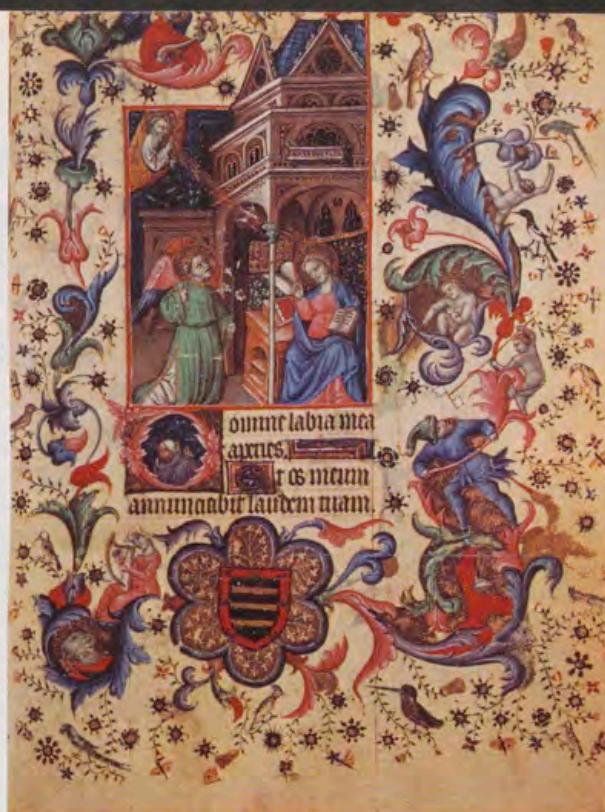 omine labia mea
aperies.
Et os meum
annunciabit laudem tuam.